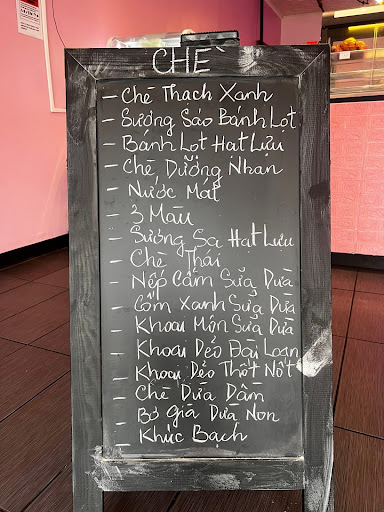 CHÈ
- Chè Thach Xanh
- Sương Sáo Bánh Lọt
- Bánh Lọt Hạt Lựu
- Chè Dưỡng Nhan
- Nước Mát
- 3 Màu
- Sương Sa Hạt Lựu
- Chè Thái
- Nếp Cẩm Sữa Dừa
- Cốm Xanh Sữa Dừa
- Khoai Môn Sữa Dừa
- Khoai Dẻo Đài Loan
- Khoai Dẻo Thốt Nốt
- Chè Dừa Dầm
- Bơ Già Dừa Non
- Khúc Bạch